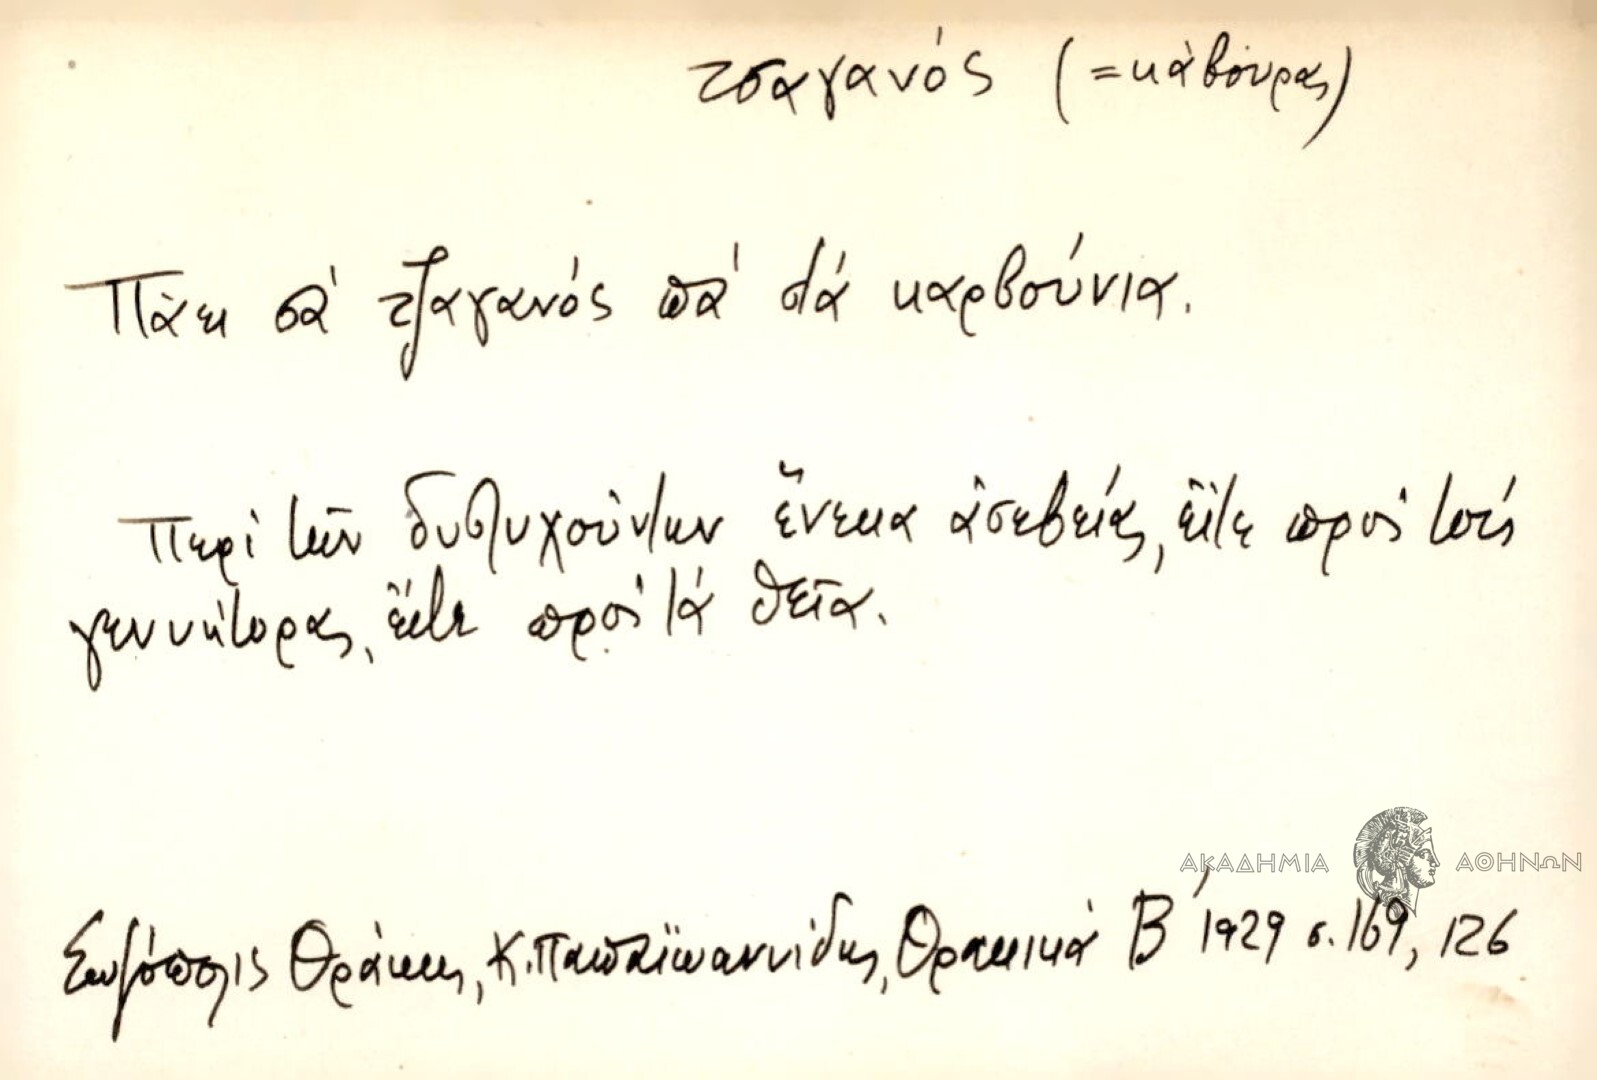 τσαγανός (=κάβουρας)
Πάει σὰ τζαγανός πά' στά καρβούνια.
Περὶ τῶν δυστυχούντων ἕνεκα ἀσεβείας, εἴτε πρὸς τούς
γεννήτορας, εἴτε πρὸς τά θεῖα.
ΑΚΑΔΗΜΙΑ ΑΘΗΝΩΝ
Σωζόπολις Θράκης, Κ. Παπαϊωαννίδης, Θρακικά Β' 1929 σ. 169, 126